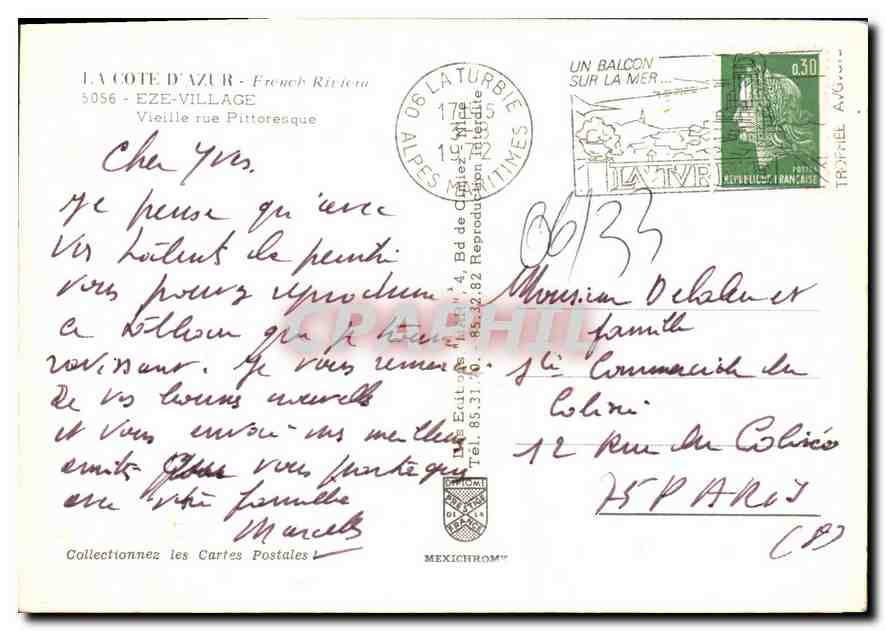 LA COTE D'AZUR - French Riviera
5056 - EZE-VILLAGE
Vieille rue Pittoresque
Cher Yves.
Je pense qu'avec
vos talents de peintre
vous pouvez reproduire
ce tableau que je trouve
ravissant. Je vous remercie
de vos bonnes nouvelles
et vous envoie mes meilleures
amitiés que vous partagerez
avec votre famille
Marcelle
Collectionnez les Cartes Postales !
06 LA TURBIE
17H15
3-3
1972
ALPES MARITIMES
UN BALCON
SUR LA MER...
LA TVR
0,30
POSTES
REPUBLIQUE FRANÇAISE
TROPHEE AVGVSTE
Les Editions "MAR", 4, Bd de Cimiez - Nice
Tél. 85.31.20. - 85.32.82 Reproduction interdite
CPAPHIL
DIPLOME
PRESTIGE
DE LA
FRANCE
MEXICHROME
06/33
Monsieur et
famille
Sté Commerciale du
Colisée
12 Rue du Colisée
75 PARIS
(8)